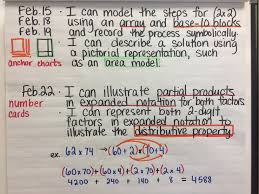 Feb.15 • I can model the steps for (2x2)
Feb.18 using an array and base-10 blocks
Feb.19 and record the process symbolically
• I can describe a solution using
a pictorial representation, such
anchor charts as an area model.
Feb.22 • I can illustrate partial products
number cards in expanded notation for both factors
• I can represent both 2-digit
factors in expanded notation to
illustrate the distributive property
ex. 62 x 74 → (60+2)x(70+4)
(60x70)+(60x4)+(2x70)+(2x4)
4200 + 240 + 140 + 8 = 4588